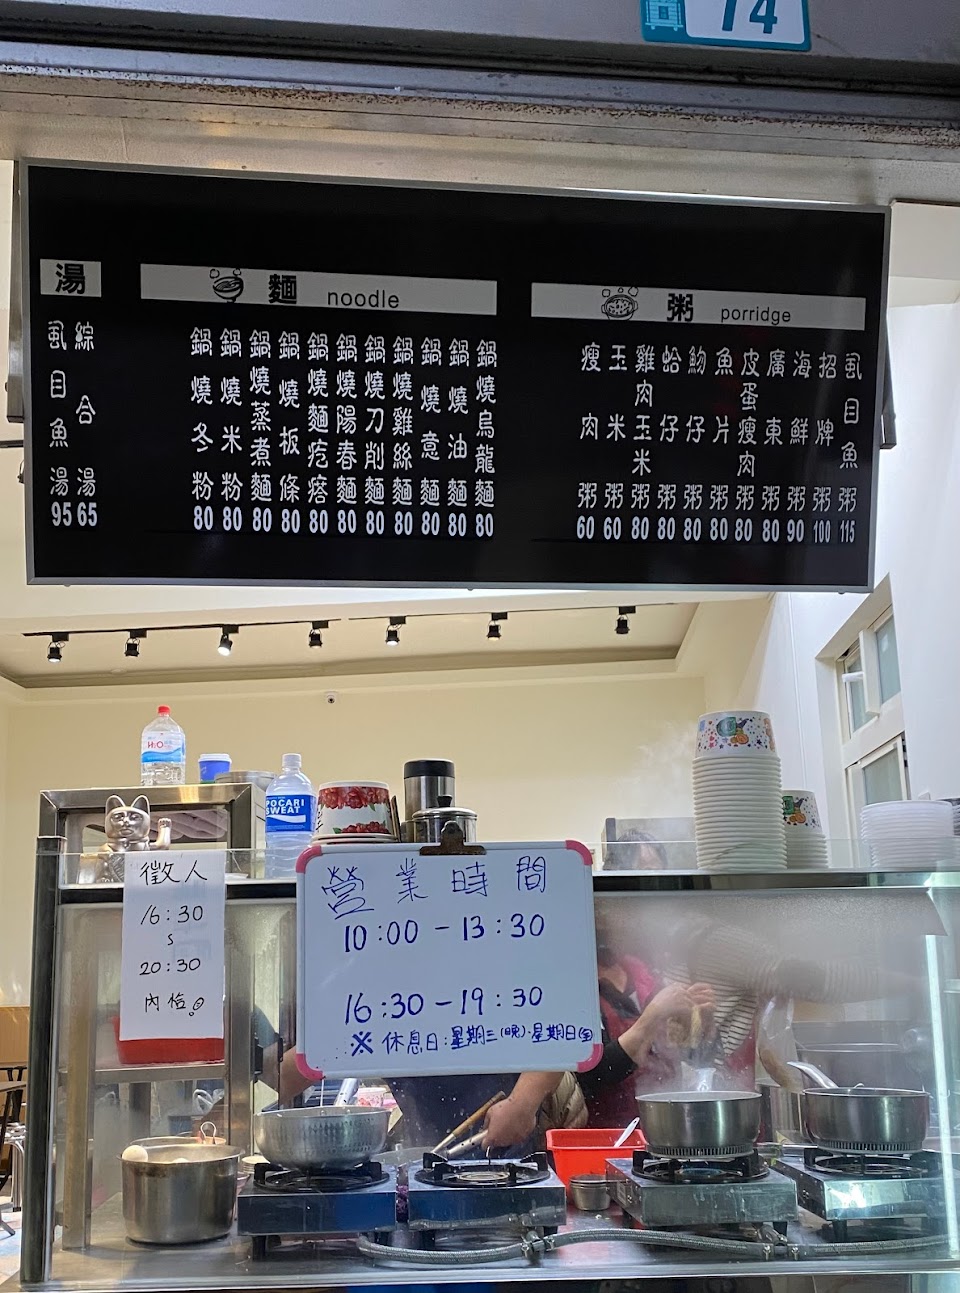 74
粥 porridge
虱目魚粥 115
招牌粥 100
海鮮粥 90
廣東粥 80
皮蛋瘦肉粥 80
魚片粥 80
魩仔粥 80
蛤仔粥 80
雞肉玉米粥 80
玉米粥 60
瘦肉粥 60
麵 noodle
鍋燒烏龍麵 80
鍋燒油麵 80
鍋燒意麵 80
鍋燒雞絲麵 80
鍋燒刀削麵 80
鍋燒陽春麵 80
鍋燒麵疙瘩 80
鍋燒板條 80
鍋燒蒸煮麵 80
鍋燒米粉 80
鍋燒冬粉 80
湯
綜合湯 65
虱目魚湯 95
H2O
POCARI
SWEAT
徵人
16:30
~
20:30
內恰
營業時間
10:00-13:30
16:30-19:30
※休息日:星期三(晚)·星期日(全)